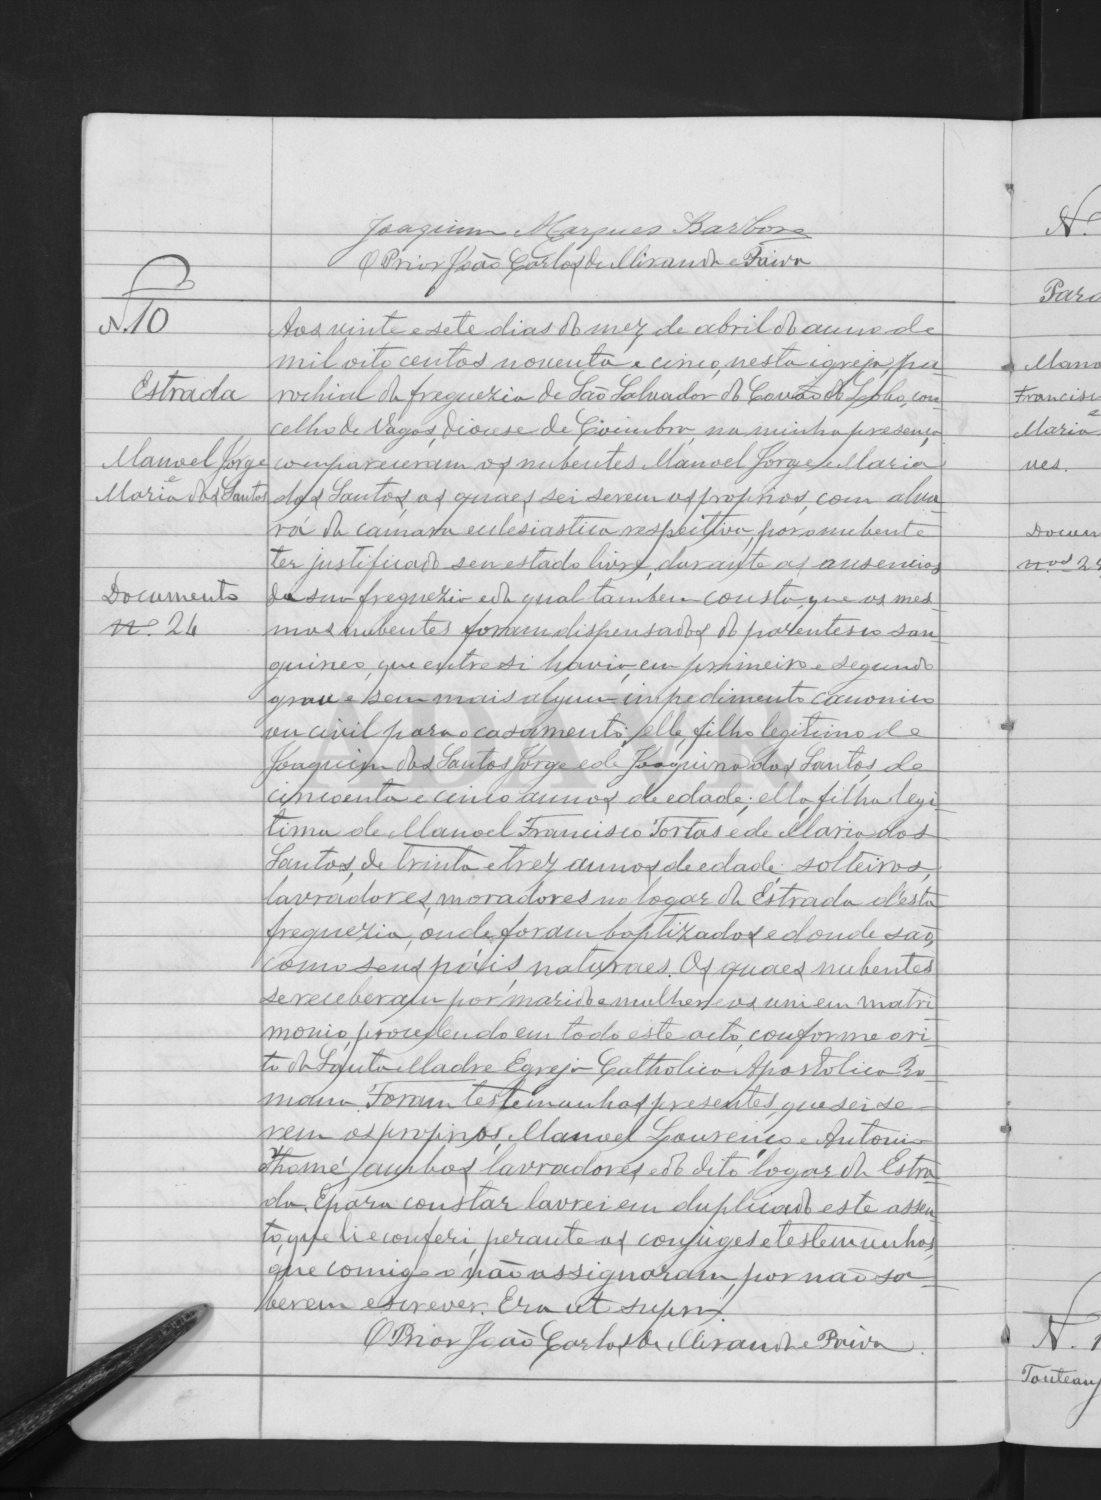 Joaquim Marques Barbosa
O Prior João Carlos de Miranda e Paiva
N. 10
Estrada
Manoel Jorge
e
Maria dos Santos
Documento
nº 24
Aos vinte e sete dias do mez de abril do anno de
mil oito centos noventa e cinco, nesta igreja pa-
rochial da freguezia de São Salvador do Covão do Lobo, con-
celho de Vagos, diocese de Coimbra, na minha presença
compareceram os nubentes Manoel Jorge e Maria
dos Santos, os quaes sei serem os proprios, com alva-
rá da camara ecclesiastica respectiva, por o nubente
ter justificado seu estado livre, durante as ausencias
da sua freguezia e da qual tambem consta, que os mes-
mos nubentes foram dispensados do parentesco san-
guineo, que entre si havia, em primeiro e segundo
grau e sem mais algum impedimento canonico
ou civil para o casamento; elle, filho legitimo de
Joaquim dos Santos Jorge e de Joaquina dos Santos, de
cincoenta e cinco annos de edade; ella, filha legi-
tima de Manoel Francisco Tortas e de Maria dos
Santos, de trinta e trez annos de edade, solteiros,
lavradores, moradores no logar da Estrada d'esta
freguezia, onde foram baptizados e donde são,
como seus páis, naturaes. Os quaes nubentes
se receberam por marido e mulher e os uni em matri-
monio, procedendo em todo este acto, conforme o ri-
to da Santa Madre Egreja Catholica Apostolica Ro-
mana. Foram testemunhas presentes, que sei se-
rem os proprios, Manoel Lourenço e Antonio
Thomé, ambos lavradores e do dito logar da Estra-
da. E para constar lavrei em duplicado este assen-
to, que li e conferi, perante os conjuges e testemunhas,
que comigo não assignaram, por não sa-
berem escrever. Era ut supra.
O Prior João Carlos de Miranda e Paiva.
ADAVR
N.
Para
Mano
Francisc
e
Maria
ues.
Docum
nos 25
N. 1